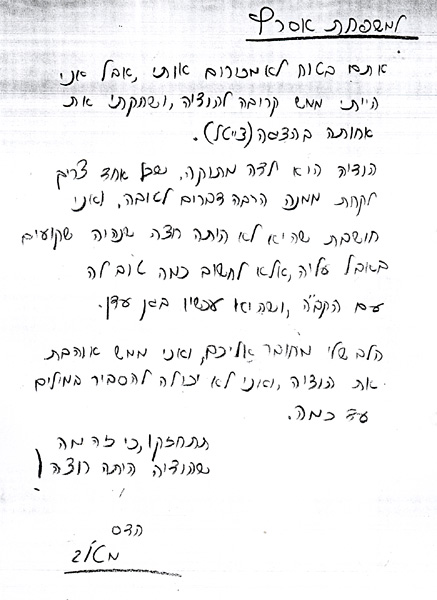 למשפחת אסרף
אתם בטוח לא מזכירים אותי, אבל אני
הייתי ממש קרובה להודיה, ושחקתי את
אחותה בהצגה (צייטל).
הודיה היא ילדה מתוקה, שכל אחד צריך
לקחת ממנה הרבה דברים לטובה, ואני
חושבת שהיא לא היתה רוצה שנהיה שקועים
באבל עליה, אלא לחשוב כמה טוב לה
עם הקב"ה, ושהיא עכשיו בגן עדן.
הלב שלי מחובר אליכם, ואני ממש אוהבת
את הודיה, ואני לא יכולה להסביר במילים
עד כמה.
תתחזקו, כי זה מה
שהודיה היתה רוצה!
הדס